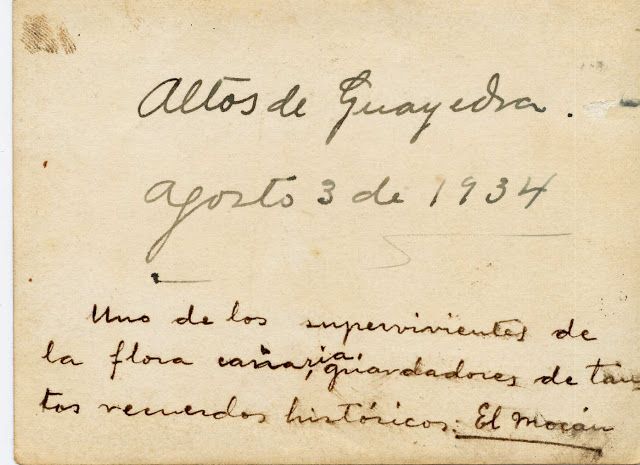 Altos de Guayedra.
Agosto 3 de 1934
Uno de los supervivientes de
la flora canaria, guardadores de tan
tos recuerdos históricos: El Mocán